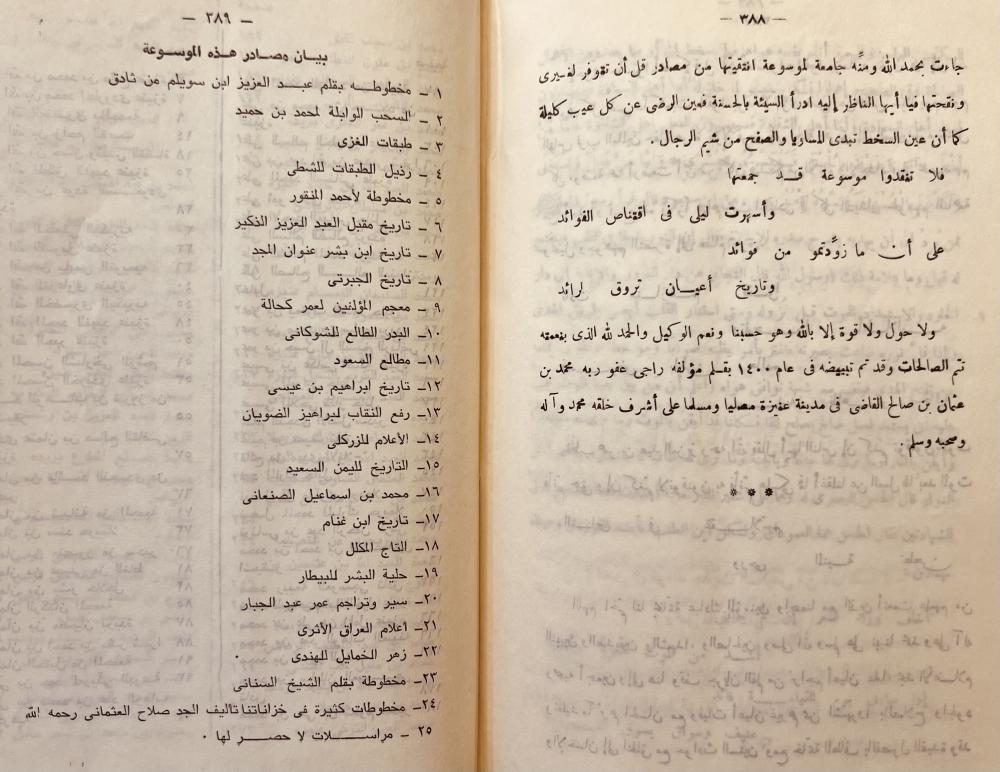 — ٣٨٨ —
جاءت بحمد الله ومنّه جامعة لموسوعة انتقيتها من مصادر قل أن تتوفر لغيرى
ونقحتها فيا أيها الناظر إليه ادرأ السيئة بالحسنة فعين الرضى عن كل عيب كليلة
كما أن عين السخط تبدى المساويا والصفح من شيم الرجال .
فلا تفقدوا موسوعة قــد جمعتها
وأسهرت ليلى فى اقتناص الفوائد
على أن ما زوّدتمو من فوائد
وتاريخ أعيــان تروق لرائد
ولا حول ولا قوة إلا بالله وهو حسبنا ونعم الوكيل والحمد لله الذى بنعمته
تتم الصالحات وقد تم تبييضه فى عام ١٤٠٠ بقــلم مؤلفه راجى عفو ربه محمد بن
عثمان بن صالح القاضى فى مدينة عنيزة مصليا ومسلما على أشرف خلقه محمد وآله
وصحبه وسلم .
* * *
— ٣٨٩ —
بيــان مصــادر هــذه الموســوعة
١ ــ مخطوطــه بقلم عبــد العزيز ابن سويلم من ثادق
٢ ــ السحب الوابلة لمحمد بن حميد
٣ ــ طبقات الغزى
٤ ــ رذيل الطبقات للشطى
٥ ــ مخطوطة لأحمد المنقور
٦ ــ تاريخ مقبل العبد العزيز الذكير
٧ ــ تاريخ ابن بشر عنوان المجد
٨ ــ تاريخ الجبرتى
٩ ــ معجم المؤلفين لعمر كحالة
١٠ــ البدر الطالع للشوكانى
١١ــ مطالع السعود
١٢ــ تاريخ ابراهيم بن عيسى
١٣ــ رفع النقاب لبراهيز الضويان
١٤ــ الأعلام للزركلى
١٥ــ التاريخ لليمن السعيد
١٦ــ محمد بن اسماعيل الصنعانى
١٧ــ تاريخ ابن غنام
١٨ــ التاج المكلل
١٩ــ حلية البشر للبيطار
٢٠ــ سير وتراجم عمر عبد الجبار
٢١ــ اعلام العراق الأثرى
٢٢ــ زهر الخمايل للهندى .
٢٣ــ مخطوطة بقلم الشيخ السنانى
٢٤ــ مخطوطات كثيرة فى خزاناتنا تاليف الجد صلاح العثمانى رحمه الله
٢٥ ــ مراســـلات لا حصــر لها .